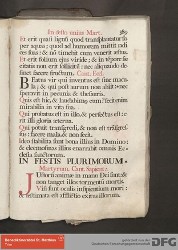 In festo unius Mart. 389
Et erit quasi lignũ quod transplantatur su
per aquas; quod ad humorem mittit radi
ces suas; & nõ timebit cum venerit æstus.
Et erit folium ejus viride; & in tẽpore sic
citatis non erit sollicitũ; nec aliquando de
sinet facere fructum. Cant. Eccl.
Beatus vir qui inventus est sine macu
la; & qui post aurum non abiit: nec
speravit in pecunia & thesauris.
Quis est hic, & laudabimus eum? fecit enim
mirabilia in vita sua.
Qui probatus est in illo, & perfectus est: e
rit illi gloria æterna.
Qui potuit transgredi, & non est trãsgres
sus: facere mala, & non fecit.
Ideo stabilita sunt bona illius in Domino: &
eleemosynas illius enarrabit omnis Ec
clesia sanctorum.
IN FESTIS PLURIMORUM
Martyrum. Cant. Sapient. 3.
Justorum animæ in manu Dei sunt: &
non tanget illos tormentũ mortis.
Visi sunt oculis insipientium mori: &
æstimata est afflictio exitus illorum.
DFG